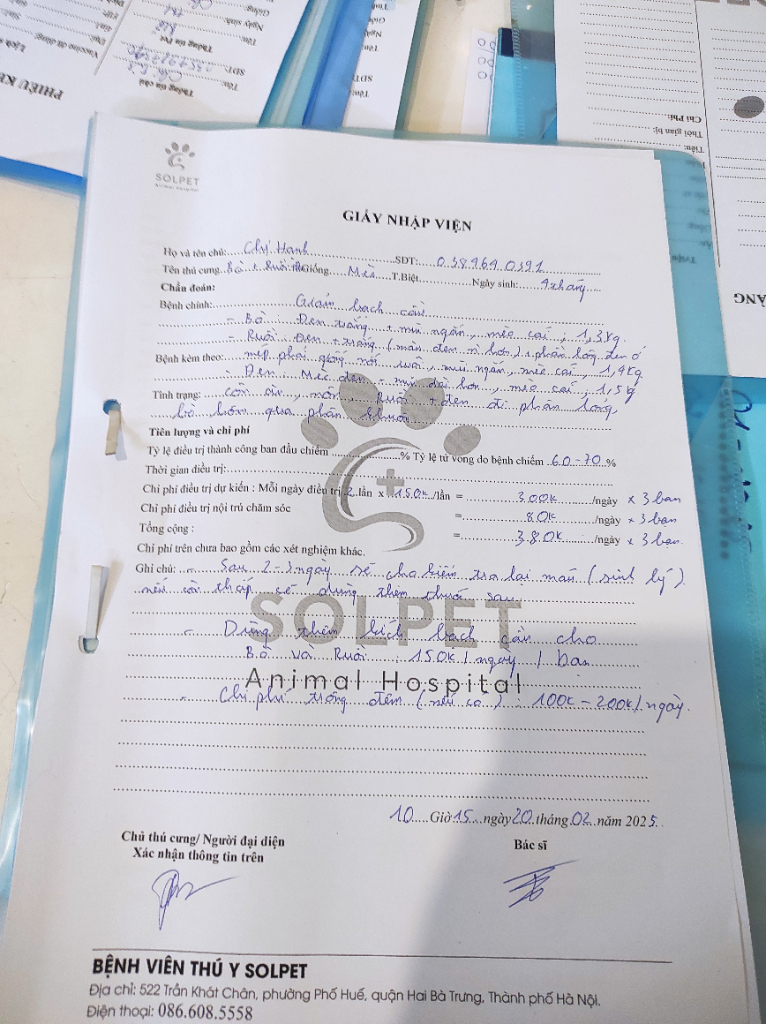 SOLPET
Animal Hospital
GIẤY NHẬP VIỆN
Họ và tên chủ: Chị Hạnh SĐT: 038969 0391
Tên thú cưng Bò + Ruồi Giống Mèo T.Biệt Ngày sinh: 9 tháng
Chẩn đoán:
Bệnh chính: Giảm bạch cầu
- Bò: Đen trắng + mũi ngắn, mèo cái, 1,3kg.
- Ruồi: Đen + trắng (màu đen nhiều hơn) + phần lông đen ở
Bệnh kèm theo: mép phải giống nốt ruồi, mũi ngắn, mèo cái, 1,4kg
- Đen: Mèo đen + mũi dài hơn, mèo cái, 1,5kg
Tình trạng: còn ăn, nôn, Ruồi + đen đi phân lỏng,
Bò hôm qua phân khuôn
Tiên lượng và chi phí
Tỷ lệ điều trị thành công ban đầu chiếm % Tỷ lệ tử vong do bệnh chiếm 60-70 %
Thời gian điều trị:
Chi phí điều trị dự kiến : Mỗi ngày điều trị 2 lần x 150k /lần = 300k /ngày x 3 bạn
Chi phí điều trị nội trú chăm sóc = 80k /ngày x 3 bạn
Tổng cộng : = 380k /ngày x 3 bạn.
Chi phí trên chưa bao gồm các xét nghiệm khác.
Ghi chú: - Sau 2-3 ngày sẽ cho kiểm tra lại máu (sinh lý)
nếu còn thấp sẽ dùng thêm thuốc sau.
SOLPET
- Dùng thêm kích bạch cầu cho
Bò và Ruồi : 150k / ngày / bạn
Animal Hospital
- Chi phí trông đêm (nếu có) : 100k - 200k / ngày.
10 Giờ 15 ngày 20 tháng 02 năm 2025.
Chủ thú cưng/ Người đại diện
Xác nhận thông tin trên
Bác sĩ
BỆNH VIỆN THÚ Y SOLPET
Địa chỉ: 522 Trần Khát Chân, phường Phố Huế, quận Hai Bà Trưng, Thành phố Hà Nội.
Điện thoại: 086.608.5558